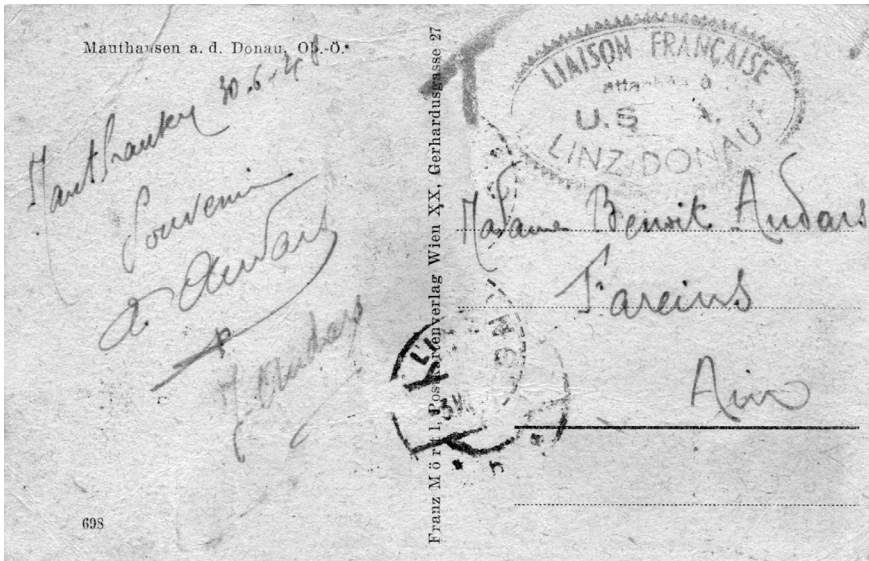 Mauthausen a. d. Donau, Ob.-Ö.
Mauthausen 30-6-48
Souvenir
A. Audars
J. Audars
698
Franz Mörtl, Postkartenverlag Wien XX, Gerhardusgasse 27
T
LIAISON FRANÇAISE
attachée à
U.S
LINZ/DONAU
Madame Benoit Audars
Fareins
Ain